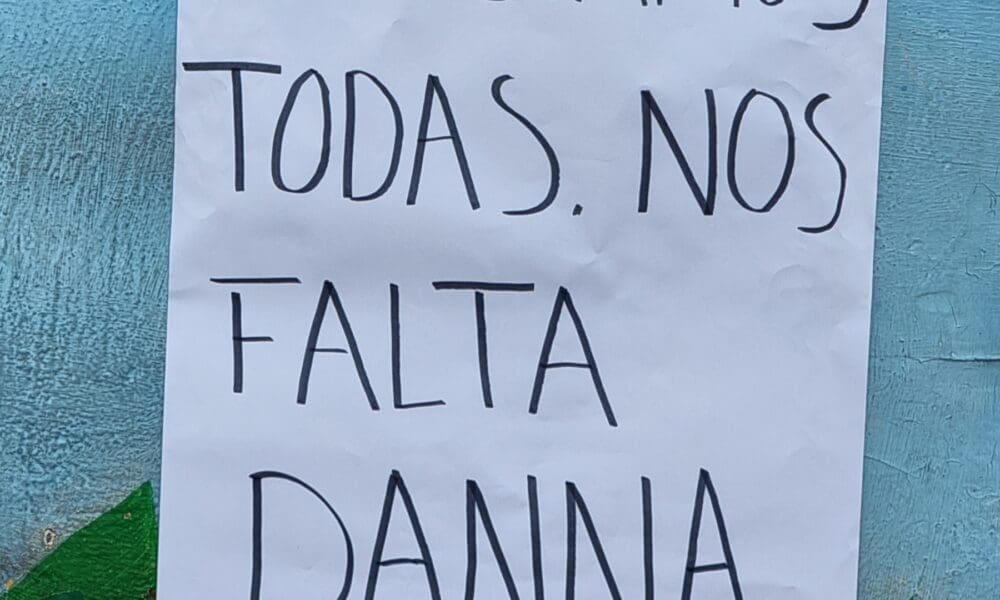 TODAS. NOS
FALTA
DANNA